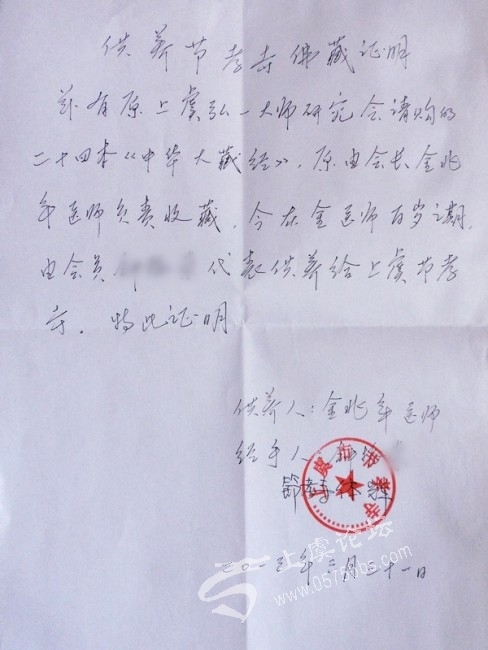 供养节孝寺佛藏证明
兹有原上虞弘一大师研究会请购的
二十四本《中华大藏经》，原由会长金兆
年医师负责收藏，今在金医师百岁之期，
由会员 代表供养给上虞节孝
寺，特此证明
供养人：金兆年医师
经手人
節孝寺
二〇一三年三月二十一日
上虞论坛
www.0575bbs.com